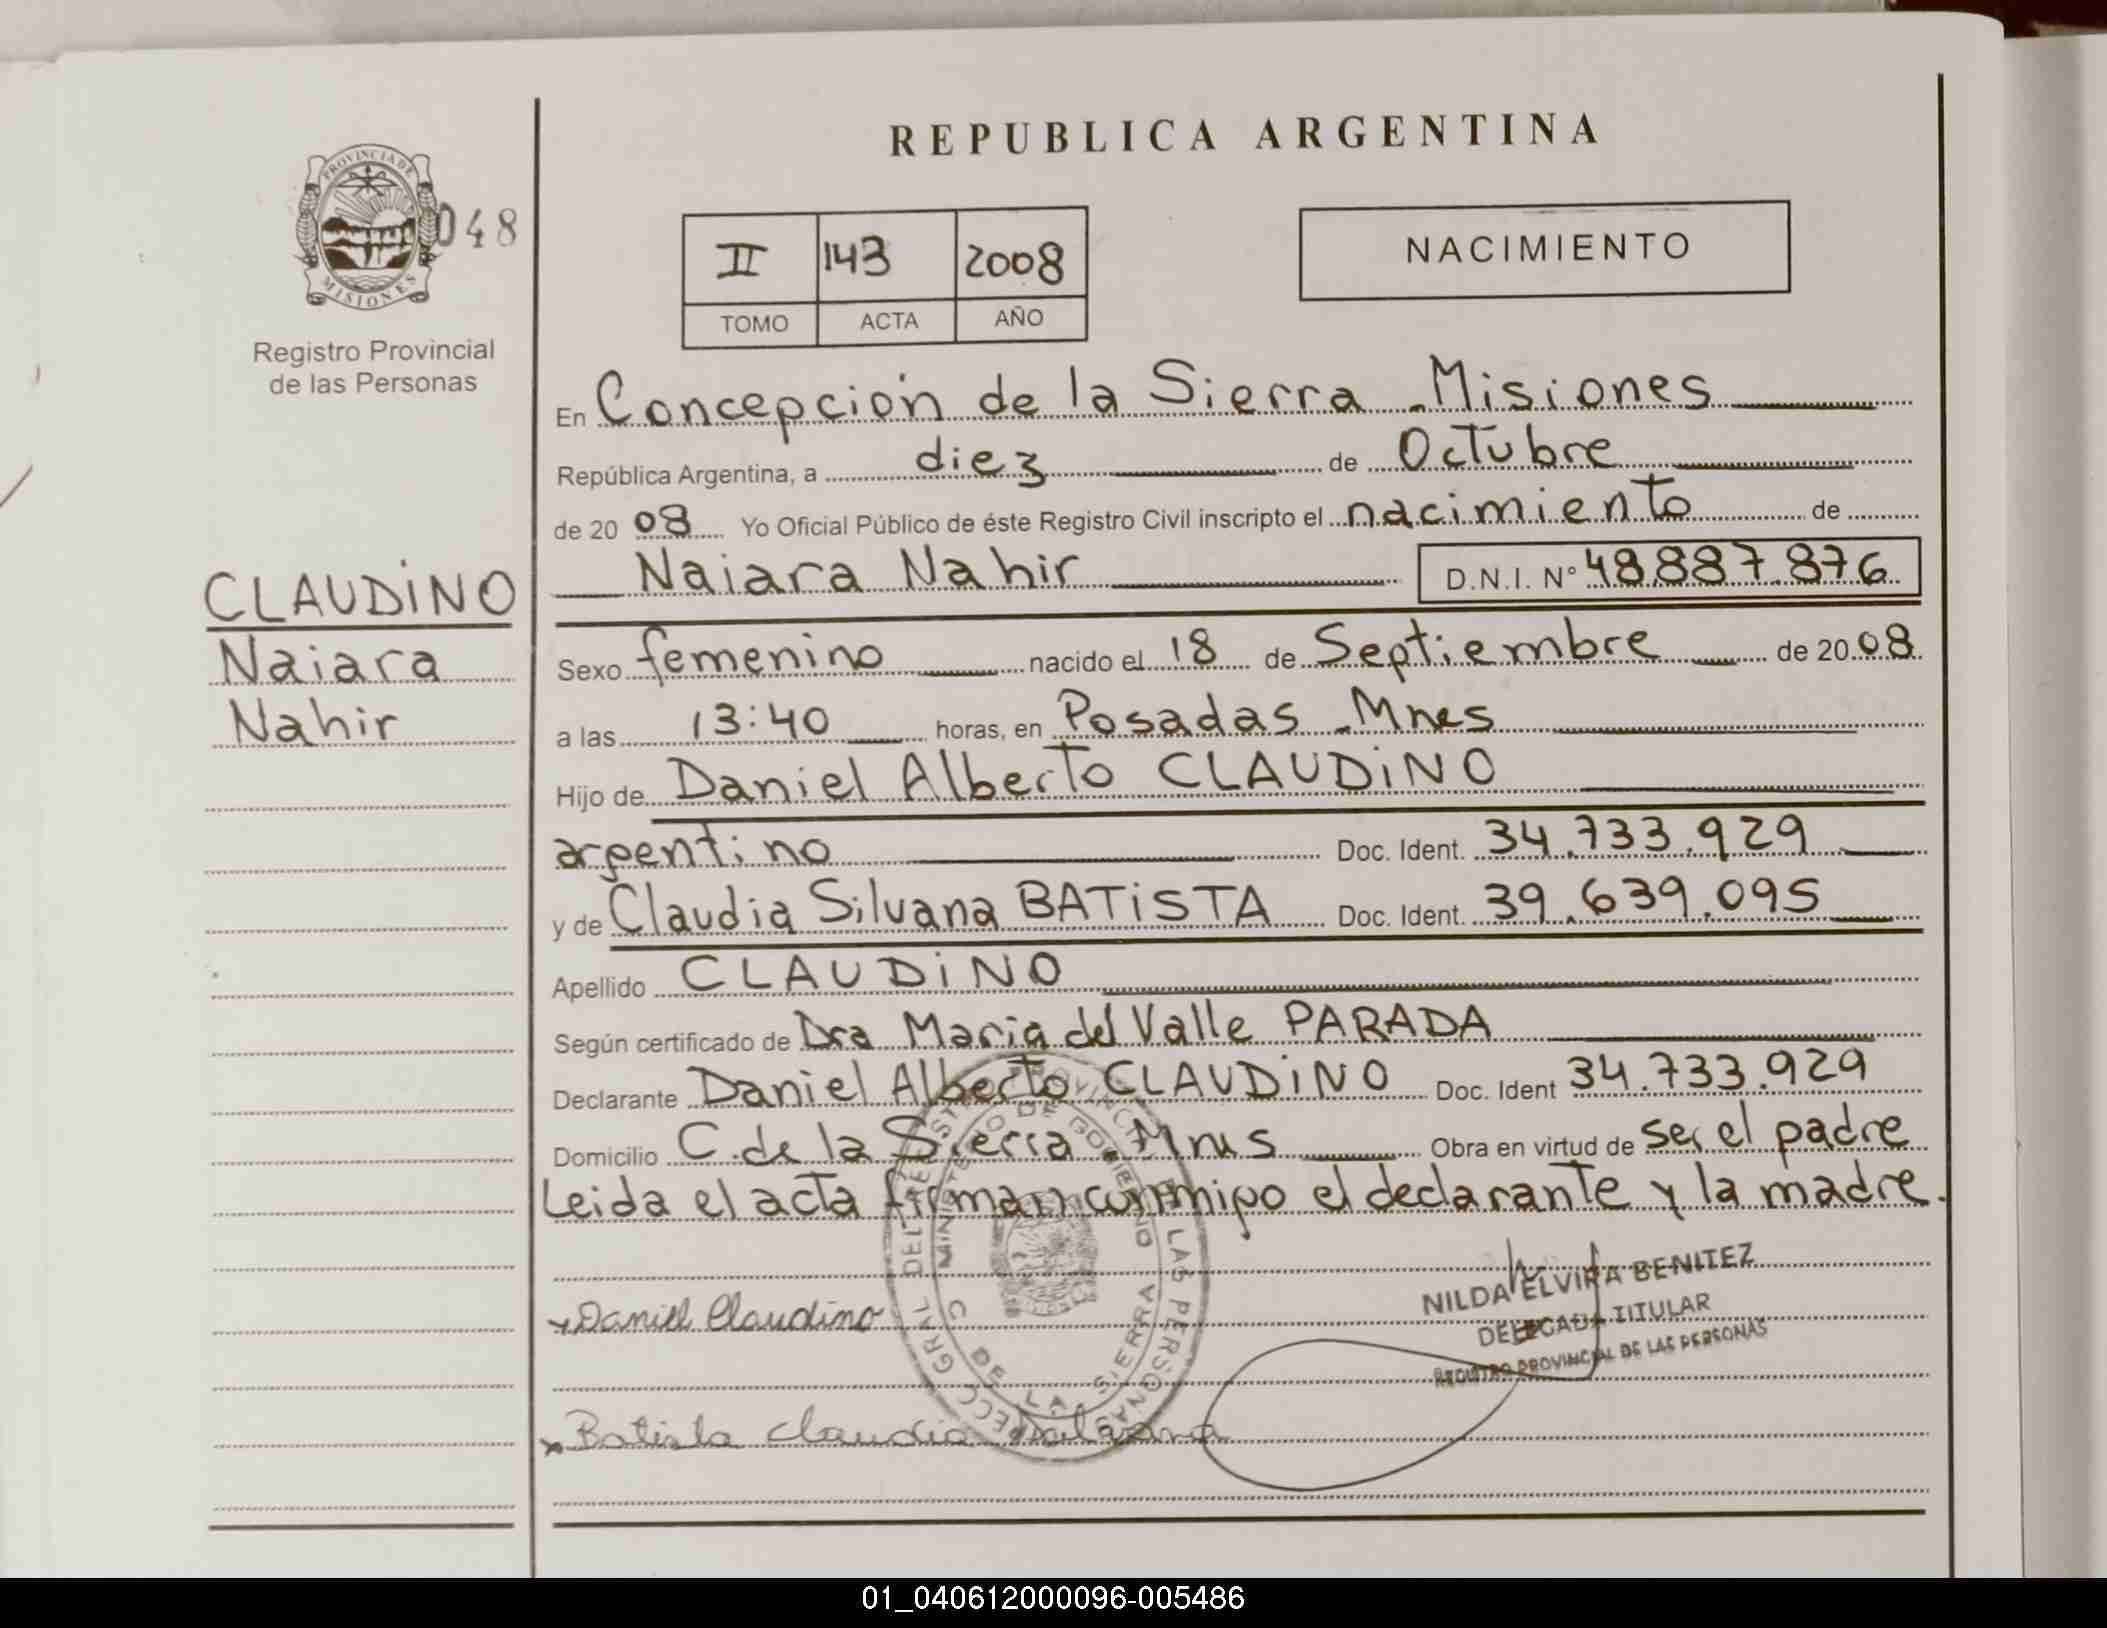 REPUBLICA ARGENTINA
PROVINCIA DE
MISIONES
048
Registro Provincial
de las Personas
II 143 2008
TOMO ACTA AÑO
NACIMIENTO
En Concepción de la Sierra - Misiones
República Argentina, a diez de Octubre
de 20 08 Yo Oficial Público de éste Registro Civil inscripto el nacimiento de
Naiara Nahir D.N.I. N° 48.887.876
CLAUDINO
Naiara
Nahir
Sexo femenino nacido el 18 de Septiembre de 20 08
a las 13:40 horas, en Posadas - Mnes
Hijo de Daniel Alberto CLAUDINO
argentino Doc. Ident. 34.733.929
y de Claudia Silvana BATISTA Doc. Ident. 39.639.095
Apellido CLAUDINO
Según certificado de Dra Maria del Valle PARADA
Declarante Daniel Alberto CLAUDINO Doc. Ident 34.733.929
Domicilio C. de la Sierra - Mnes Obra en virtud de ser el padre
Leida el acta firman conmigo el declarante y la madre.
NILDA ELVIRA BENITEZ
DELEGADA TITULAR
REGISTRO PROVINCIAL DE LAS PERSONAS
Daniel Claudino
Batista Claudia Silvana
MINISTERIO DE GOBIERNO
C. DE LA SIERRA
01_040612000096-005486